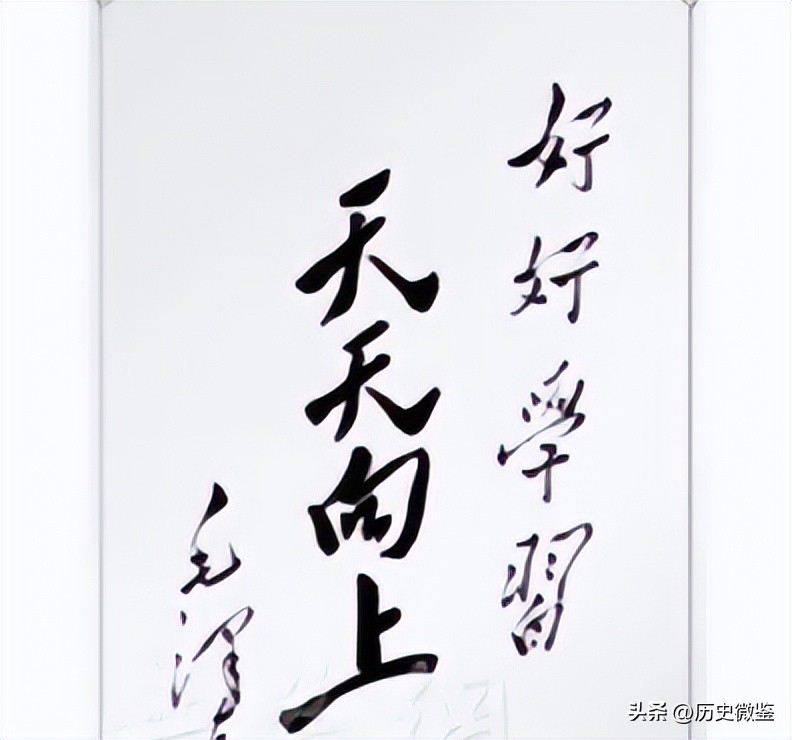 好好學習
天天向上
毛澤
头条 @历史微鉴